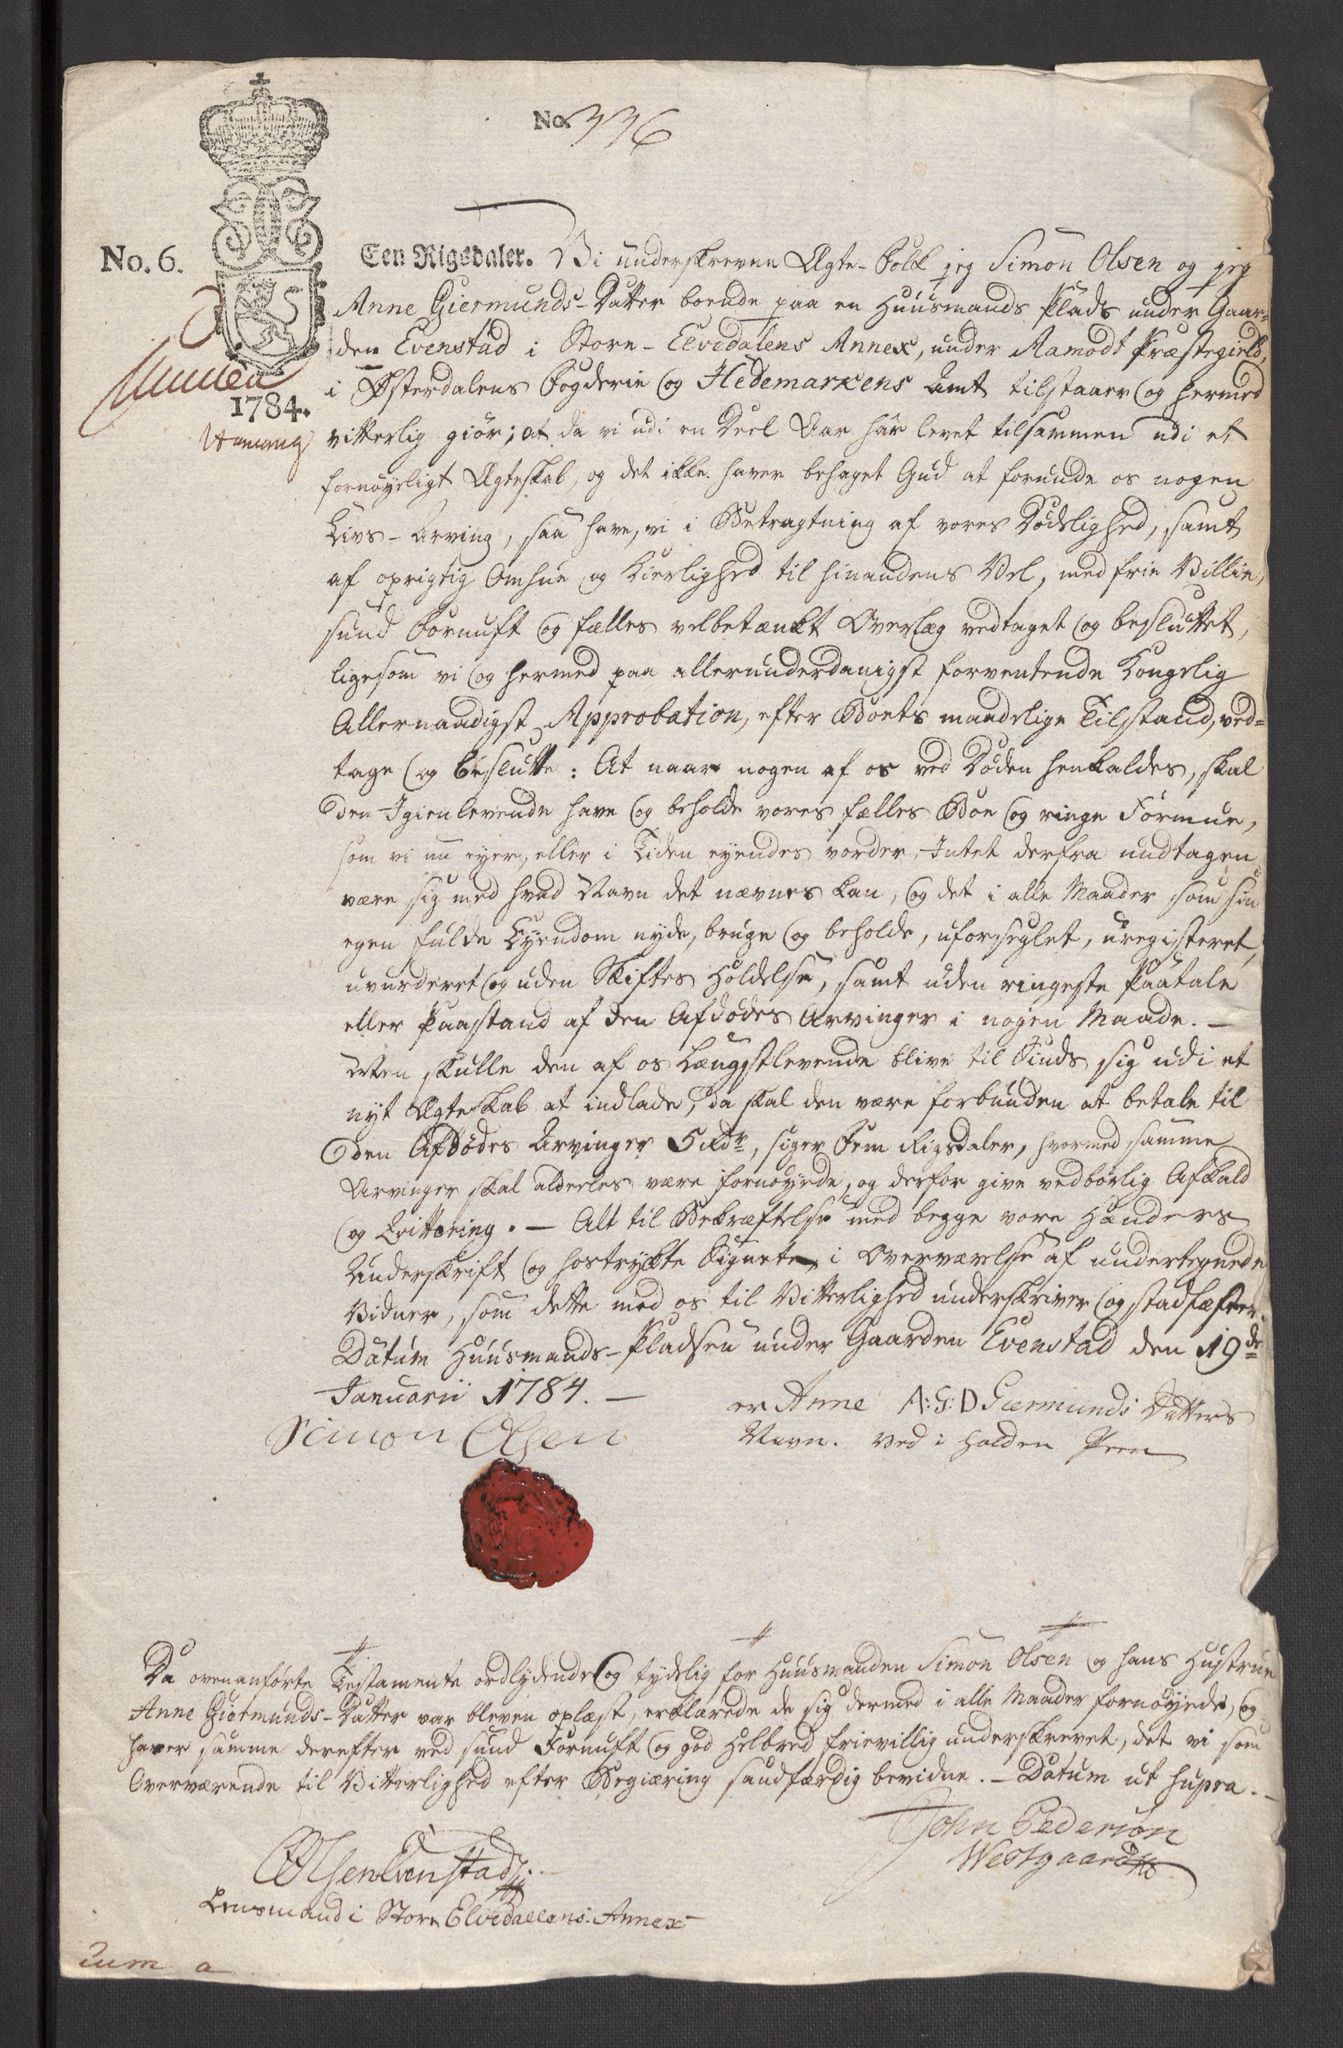 No. 336
No. 6.
1784.
Een Rigsdaler. Vi underskrevne Ægte-Folk jeg Simon Olsen og jeg
Anne Giermunds-Datter boende paa en Huusmands Plads under Gaar-
den Evenstad i Store-Elvedalens Annex, under Aamodt Præstegield,
i Østerdalens Fogderie og Hedemarkens Amt tilstaar og hermed
vitterlig giør; at da vi udi en Deel Aar har levet tilsammen udi et
fornøyeligt Ægteskab, og det ikke haver behaget Gud at forunde os nogen
Livs-Arving, saa have vi i Betragtning af vores Dødelighed, samt
af oprigtig Omhue og Kierlighed til hinandens Vel, med frie Villie,
sund Fornuft og fælles velbetænkt Overlæg vedtaget og besluttet,
ligesom vi og hermed paa allerunderdanigst forventende Kongelig
Allernaadigst Approbation, efter Boets maadelige Tilstand, ved-
tage og beslutte: At naar nogen af os ved Døden henkaldes, skal
den Igienlevende have og beholde vores fælles Boe og ringe Formue,
som vi nu eyer, eller i Tiden eyendes vorder, Intet derfra undtagen
være sig med hvad Navn det nævnes kan, og det i alle Maader som sin
egen fulde Eyendom nyde, bruge og beholde, uforseglet, uregisteret,
uvurderet og uden Skiftes Holdelse, samt uden ringeste Paatale
eller Paastand af den Afdødes Arvinger i nogen Maade. —
Men skulle den af os Længstlevende blive til Sinds sig udi et
nyt Ægteskab at indlade, da skal den være forbunden at betale til
den Afdødes Arvinger 5 Rdr, siger Fem Rigsdaler, hvormed samme
Arvinger skal aldeeles være fornøyede, og derfor give vedbørlig Afkald
og Qvittering. — Alt til Bekræftelse med begge vore Hænders
Underskrift og hostrykte Signete, i Overværelse af undertegnede
Vidner, som dette med os til Vitterlighed underskriver og stadfæster.
Datum Huusmands-Pladsen under Gaarden Evenstad den 19de
Januarii 1784. —
Simon Olsen
er Anne A:G:D Giermunds Datters
Navn. ved i holden Peen
Da ovenanførte Testamente ordlydende og tydelig for Huusmanden Simon Olsen og hans Hustrue
Anne Giermunds-Datter var bleven oplæst, erklærede de sig dermed i alle Maader fornøyede, og
haver samme derefter ved sund Fornuft og god Helbred frievillig underskrevet, det vi som
Overværende til Vitterlighed efter Begiæring sandfærdig bevidne. — Datum ut supra. —
Olsen Evenstad
Lensmand i Store Elvedalens Annex
John Pederson
Westgaard